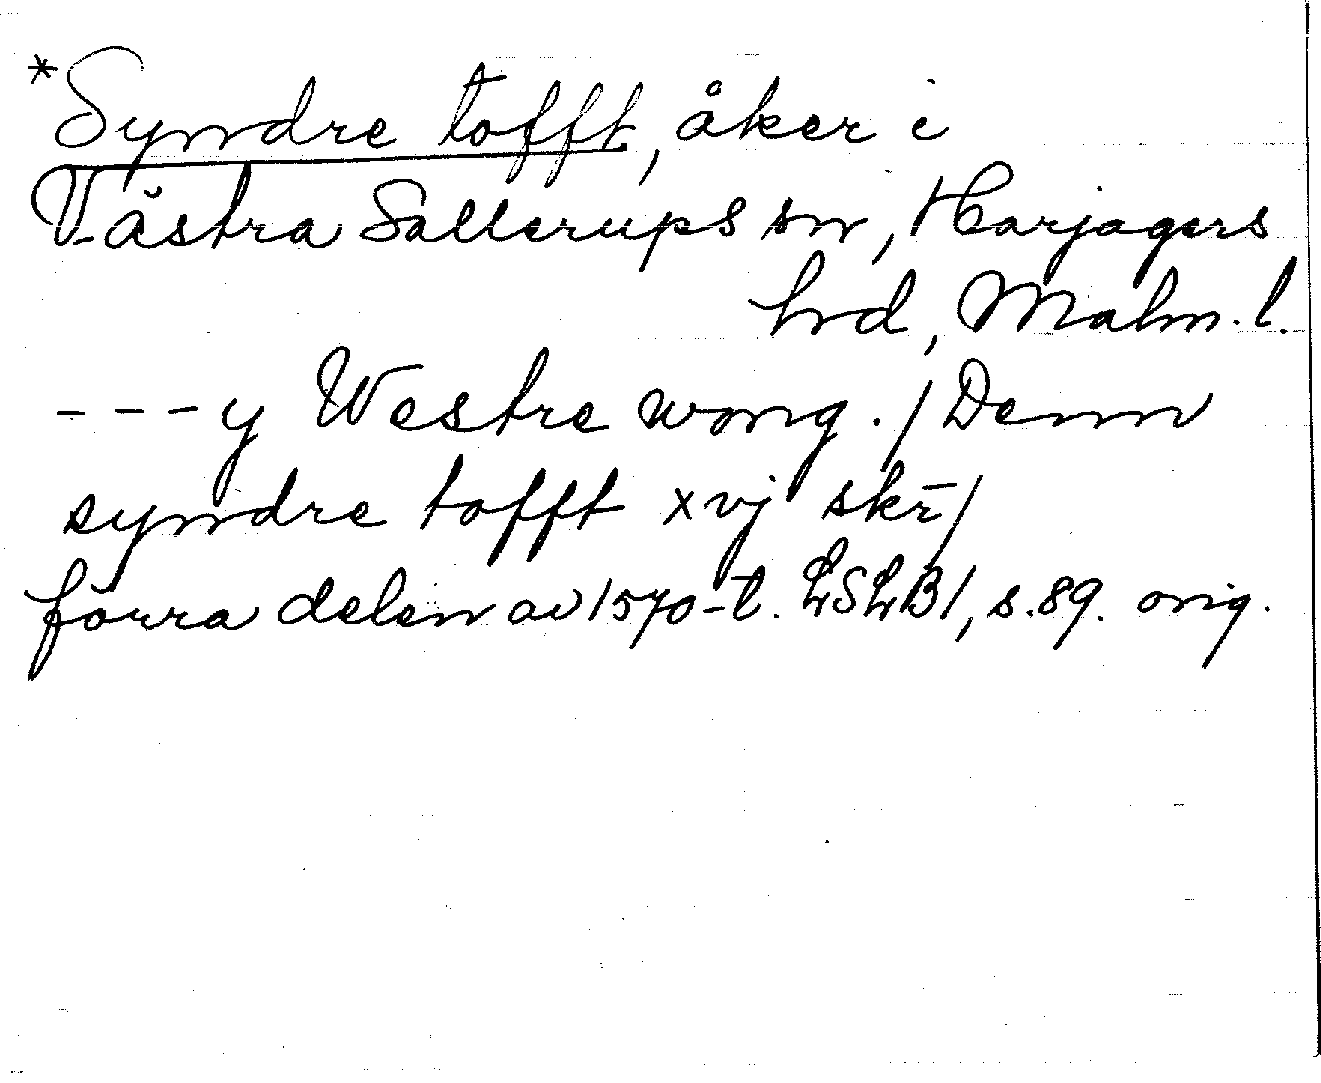 *Syndre tofft, åker i
Västra Sallerups sn, Harjagers
hrd, Malm. l.
---y Westre wong./Denn
syndre tofft xvj skr̄/
förra delen av 1570-t. LSLB1, s.89. orig.